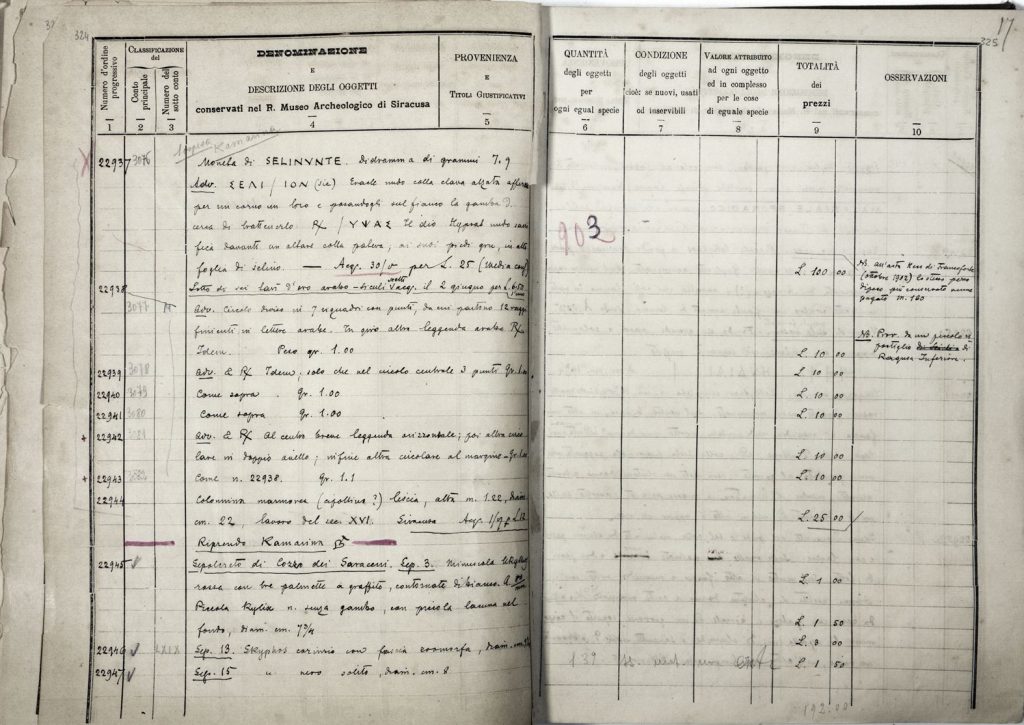 324
Numero d'ordine progressivo
CLASSIFICAZIONE del
Conto principale
Numero del sotto conto
DENOMINAZIONE
E
DESCRIZIONE DEGLI OGGETTI
conservati nel R. Museo Archeologico di Siracusa
PROVENIENZA
E
TITOLI GIUSTIFICATIVI
1 2 3 4 5
Kamarina
22937 3076 Moneta di SELINVNTE. Didramma di grammi 7.9
Adv. ΣΕΛΙ / ΙΟΝ (sic) Eracle nudo colla clava alzata
per un corno un toro e posandogli sul fianco la gamba
cerca di trattenerlo. R/ / ΥΨΑΣ Il dio Hypsas nudo
fica davanti un altare colla patera; ai suoi piedi gru, in alto
foglia di selino. — Acq. 30/5 per L. 25
22938 Lotto di sei tarì d'oro arabo-siculi acq. il 2 giugno per L.
3077 Adv. Circolo diviso in 7 riquadri con punti, da cui partono 12 raggi
finienti in lettere arabe. In giro altra leggenda araba R/
Idem. Peso gr. 1.00
22939 3078 Adv. & R/ Idem; solo che nel circolo centrale 3 punti Gr.
22940 3079 Come sopra. Gr. 1.00
22941 3080 Come sopra Gr. 1.00
+ 22942 3081 Adv. & R/ Al centro breve leggenda orizzontale; poi altra circo
lare in doppio anello; infine altra circolare al margine -
+ 22943 3082 Come n. 22938. Gr. 1.1
22944 Colonnina marmorea (cipollino?) liscia, alta m. 1.22, diam.
cm. 22, lavoro del sec. XVI. Siracusa Acq.
Riprendo Kamarina
22945 Sepolcreto di Cozzo dei Saraceni. Sep. 3. Minuscola lekythos
rossa con tre palmette a graffito, contornate di bianco.
Piccola Kylix n. senza gambo, con piccola lacuna nel
fondo, diam. cm. 7 3/4
22946 Sep. 13. Skyphos corinzio con fascia zoomorfa, diam. cm.
22947 Sep. 15 " nero solito, diam. cm. 8
17
325
QUANTITÀ
degli oggetti
per
ogni egual specie
CONDIZIONE
degli oggetti
cioè: se nuovi, usati
od inservibili
VALORE ATTRIBUITO
ad ogni oggetto
ed in complesso
per le cose
di eguale specie
TOTALITÀ
dei
prezzi
OSSERVAZIONI
6 7 8 9 10
903
L. 100 00
NB. All'asta Hess di Francoforte
(ottobre 1912) lo stesso pezzo
più conservato venne
pagato m. 160
L. 10 00
NB. Prov. da un piccolo ri
postiglio di
Ragusa Inferiore.
L. 10 00
L. 10 00
L. 10 00
L. 10 00
L. 10 00
L. 25 00
L. 1 00
L. 1 50
L. 3 00
L. 1 50
192.00